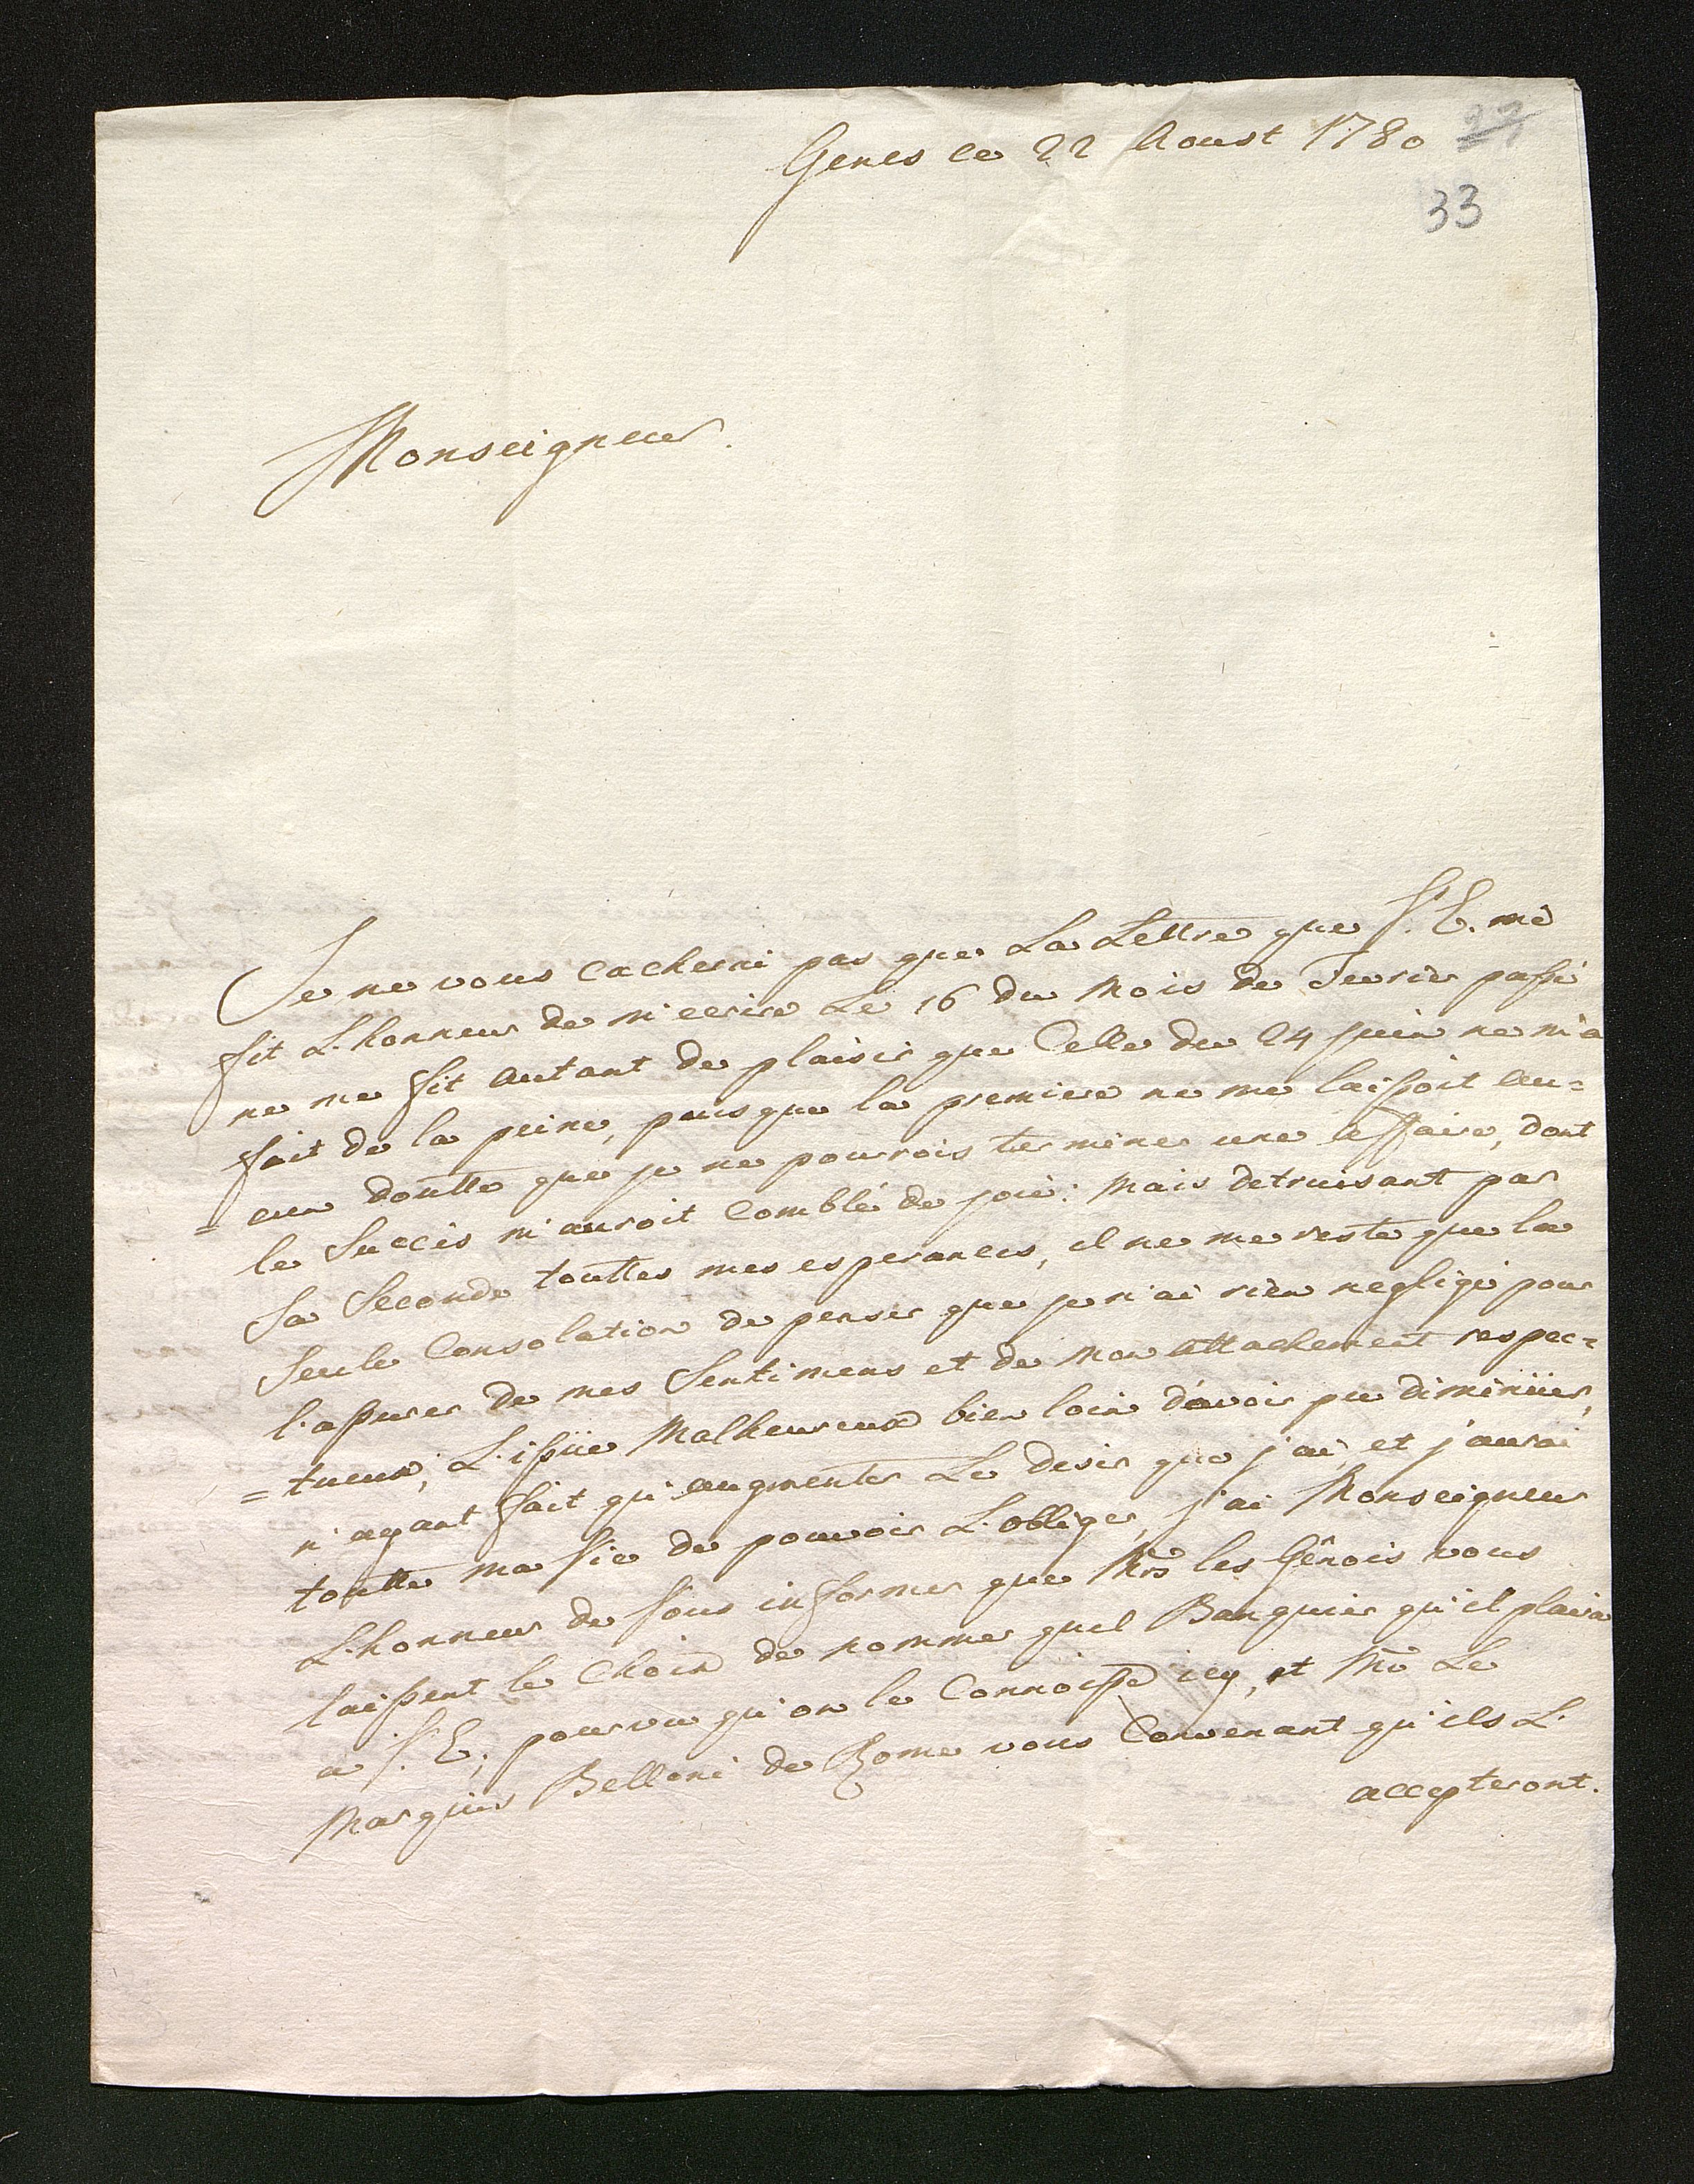 Genes ce 22 Aoust 1780 27
33
Monseigneur.
Je ne vous cacherai pas que La Lettre que V. E. me
fit L'honneur de m'ecrire Le 16 du Mois de Fevrier passé
ne me fit autant de plaisir que Celle du 24 juin ne m'a
fait de la peine, puisque la premiere ne me laissoit au=
=cun doutte que je ne pourrois terminer une affaire, dont
le Succés m'auroit Comblé de joie: Mais detruisant par
Sa Seconde touttes mes esperances, il ne me reste que la
Seule Consolation de penser que je n'ai rien negligé pour
l'assurer de mes Sentimens et de Mon attachement respec=
=tueux, L'issüe Malheureux bien loin d'avoir pu diminüer,
n'ayant fait qu'augmenter Le desir que j'ai, et j'aurai
toutte ma Vie de pouvoir L'obliger, j'ai Monseigneur
L'honneur de Vous informer que Mrs les Génois vous
laissent le Choix de nommer quel Banquier qu'il plaira
a V. E, pourvu qu'on le Connoisse icy, et Mr Le
Marquis Belloni de Rome vous Convenant qu'ils L'
accepteront.